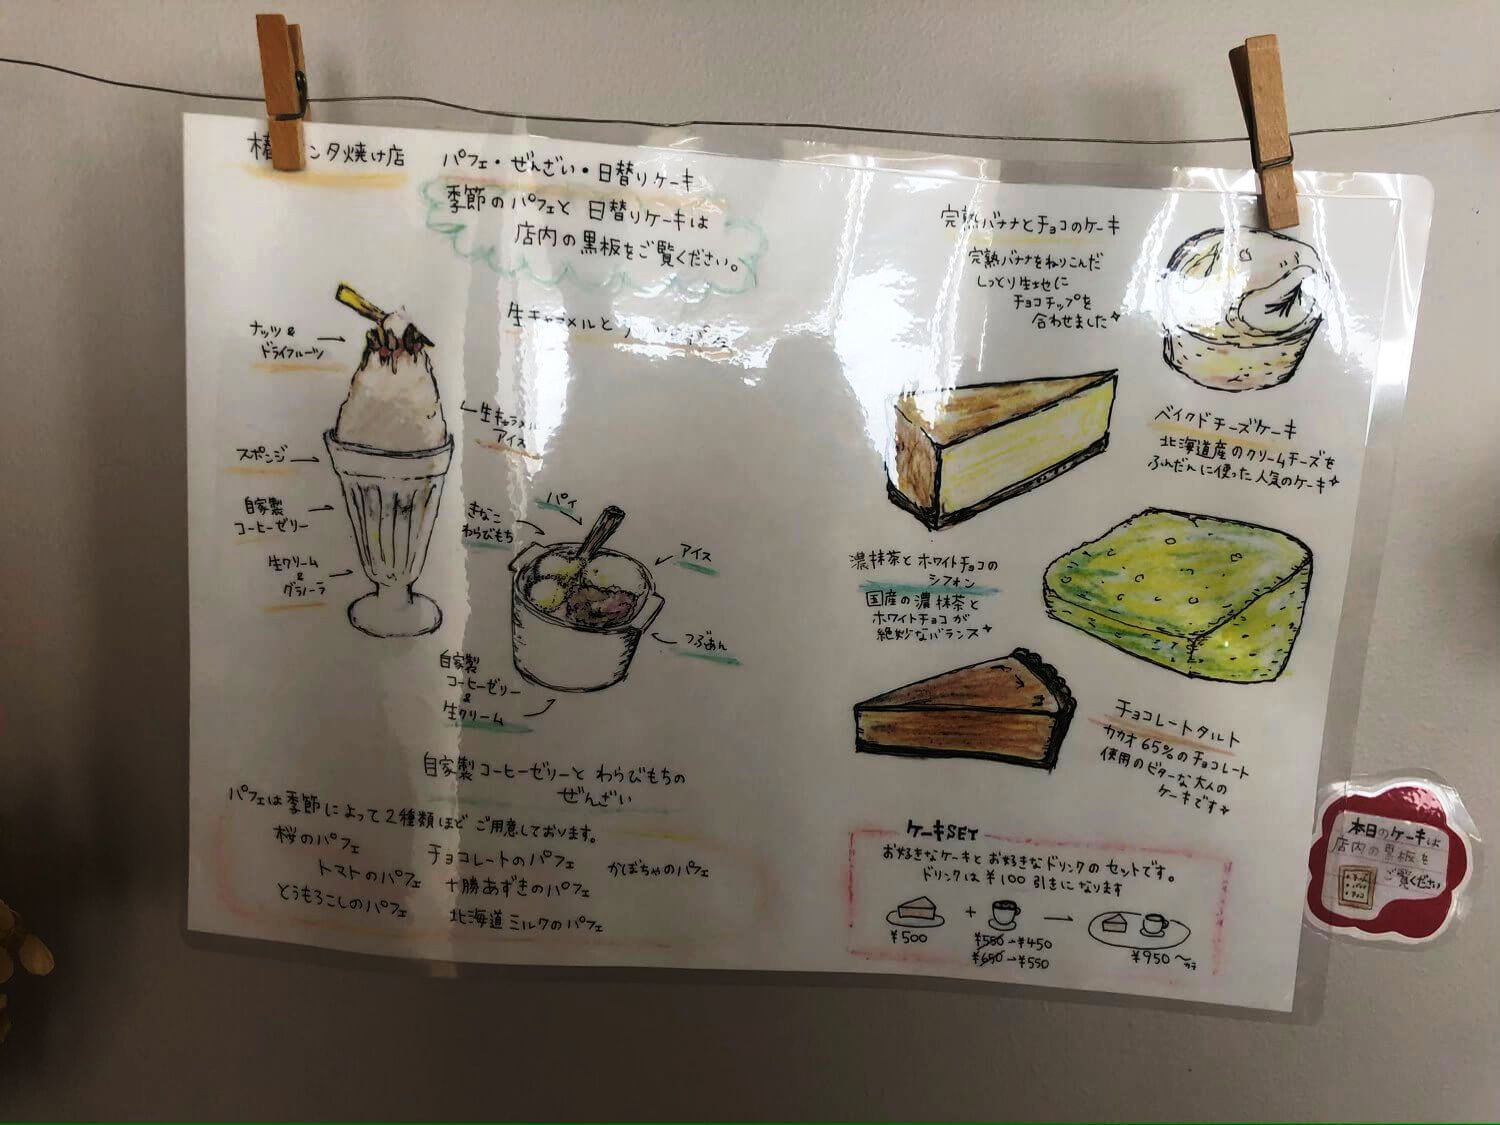 ンタ焼け店
パフェ・ぜんざい・日替りケーキ
季節のパフェと 日替りケーキは
店内の黒板をご覧ください。
生キャラメルと
ナッツ&
ドライフルーツ
←生キャラメル
アイス
スポンジ
自家製
コーヒーゼリー
生クリーム
&
グラノーラ
きなこ
わらびもち
パイ
アイス
つぶあん
自家製
コーヒーゼリー
&
生クリーム
自家製コーヒーゼリーと わらびもちの
ぜんざい
パフェは季節によって2種類ほど ご用意しております。
桜のパフェ
チョコレートのパフェ
かぼちゃのパフェ
トマトのパフェ
十勝あずきのパフェ
とうもろこしのパフェ
北海道ミルクのパフェ
完熟バナナとチョコのケーキ
完熟バナナをねりこんだ
しっとり生地に
チョコチップを
合わせました
ベイクドチーズケーキ
北海道産のクリームチーズを
ふんだんに使った人気のケーキ
濃抹茶とホワイトチョコの
シフォン
国産の濃抹茶と
ホワイトチョコが
絶妙なバランス
チョコレートタルト
カカオ65%のチョコレート
使用のビターな大人の
ケーキです
ケーキSET
お好きなケーキとお好きなドリンクのセットです。
ドリンクは¥100引きになります
+ →
¥500
¥550→¥450
¥650→¥550
¥950〜
本日のケーキは
店内の黒板を
ご覧ください